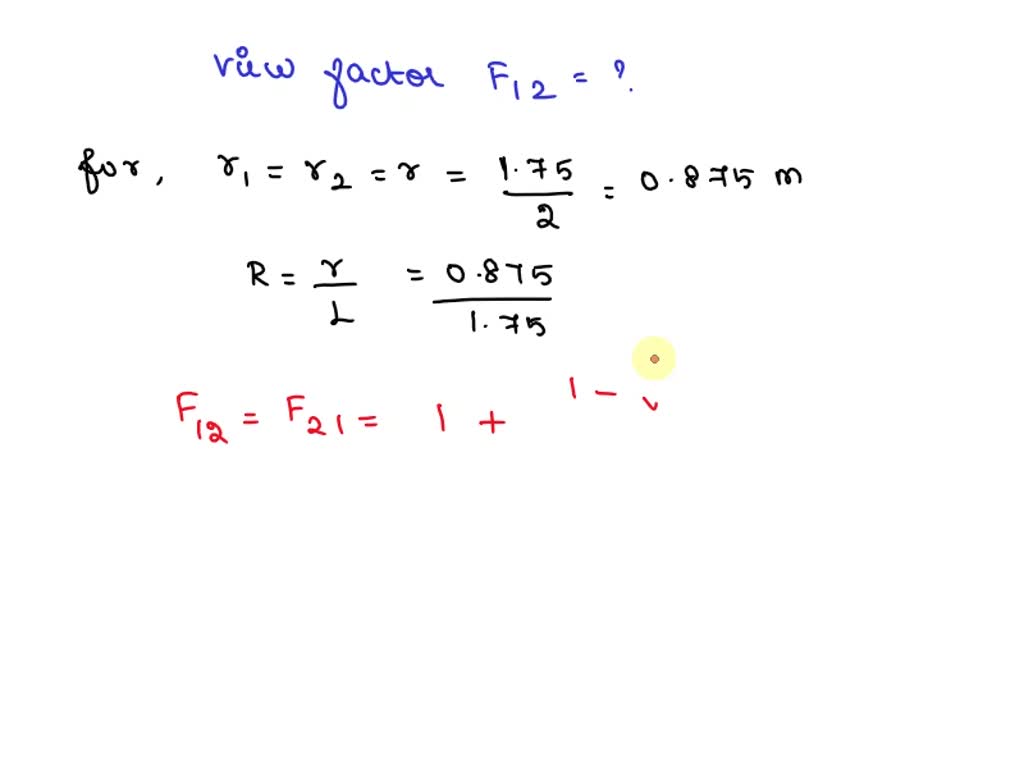 view factor F12 = ?
for, r1 = r2 = r = 1.75/2 = 0.875 m
R = r/L = 0.875/1.75
F12 = F21 = 1 + 1 - √